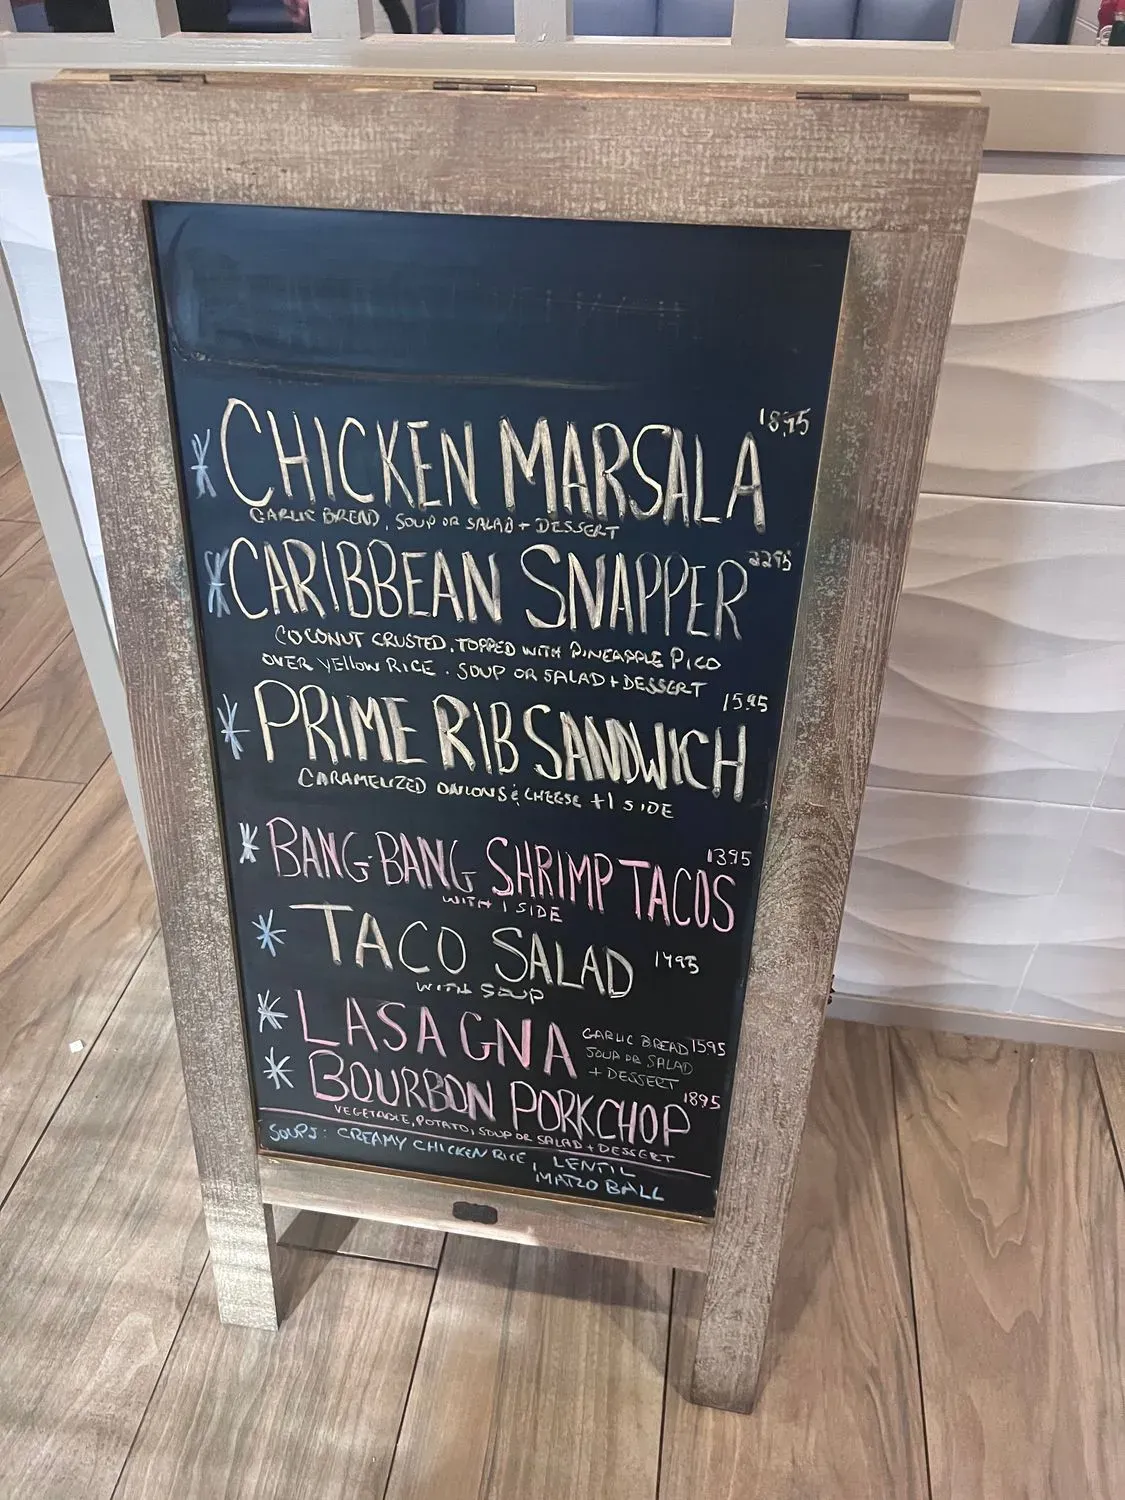 CHICKEN MARSALA 1895
GARLIC BREAD, SOUP OR SALAD + DESSERT
CARIBBEAN SNAPPER 2295
COCONUT CRUSTED, TOPPED WITH PINEAPPLE PICO
OVER YELLOW RICE. SOUP OR SALAD + DESSERT
PRIME RIB SANDWICH 1595
CARAMELIZED ONIONS & CHEESE + 1 SIDE
BANG-BANG SHRIMP TACOS 1395
WITH 1 SIDE
TACO SALAD 1495
WITH SOUP
LASAGNA GARLIC BREAD 1595
SOUP OR SALAD
+ DESSERT
BOURBON PORKCHOP 1895
VEGETABLE, POTATO, SOUP OR SALAD + DESSERT
SOUPS: CREAMY CHICKEN RICE, LENTIL
MATZO BALL